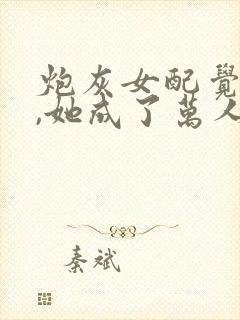 炮灰女配覺
,她成了萬人
秦斌